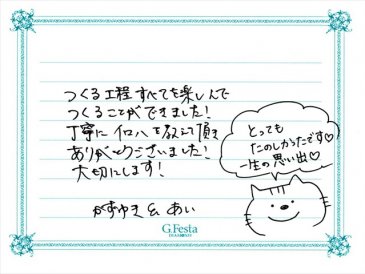 つくる工程すべてを楽しんで
つくることができました!
丁寧にイロハを教えて頂き
ありがとうございました!
大切にします!
かずゆき & あい
とっても
たのしかったです♡
一生の思い出♡
G.Festa